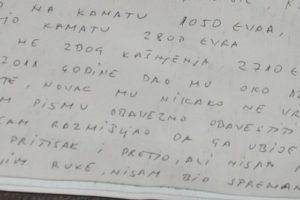 NA KAMATU 1050 EVRA,
KAMATU 2800 EVRA
NE ZBOG KAŠNJENJA 2710 E
GODINE DAO MU OKO
NOVAC MU NIKAKO NE VR
PISMU OBAVEZNO OBAVESTITI
SAM RAZMIŠLJAO DA GA UBIJE
PRITISAK I PRETIO, ALI NISAM
RUKE, NISAM BIO SPREMAN